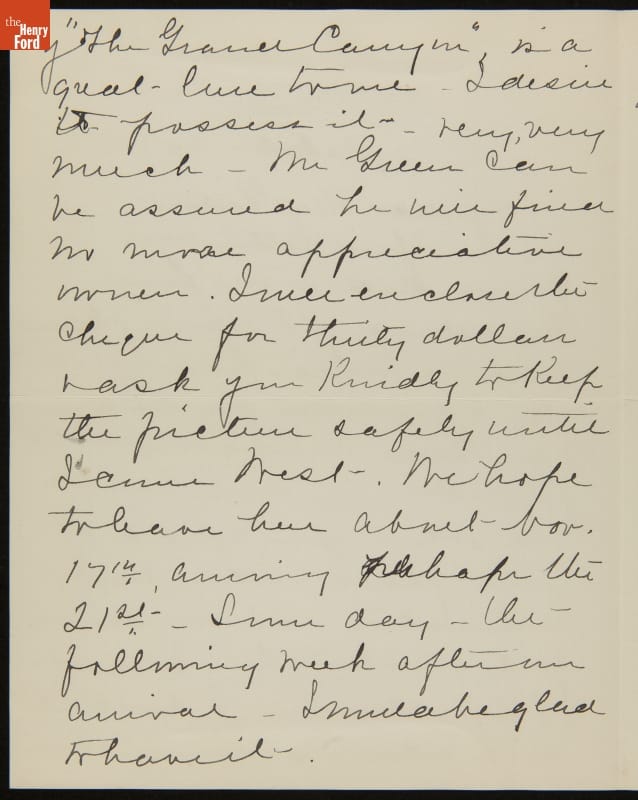 the
Henry
Ford
of "The Grand Canyon", is a
great - lure to me - I desire
to possess it - very, very
much - Mr Green can
be assured he will find
no more appreciative
owner. I will enclose the
cheque for thirty dollars
& ask you kindly to keep
the picture safely until
I come West. We hope
to leave here about Nov.
17th, arriving perhaps the
21st - Some day - the
following week after our
arrival - I would be glad
to have it.